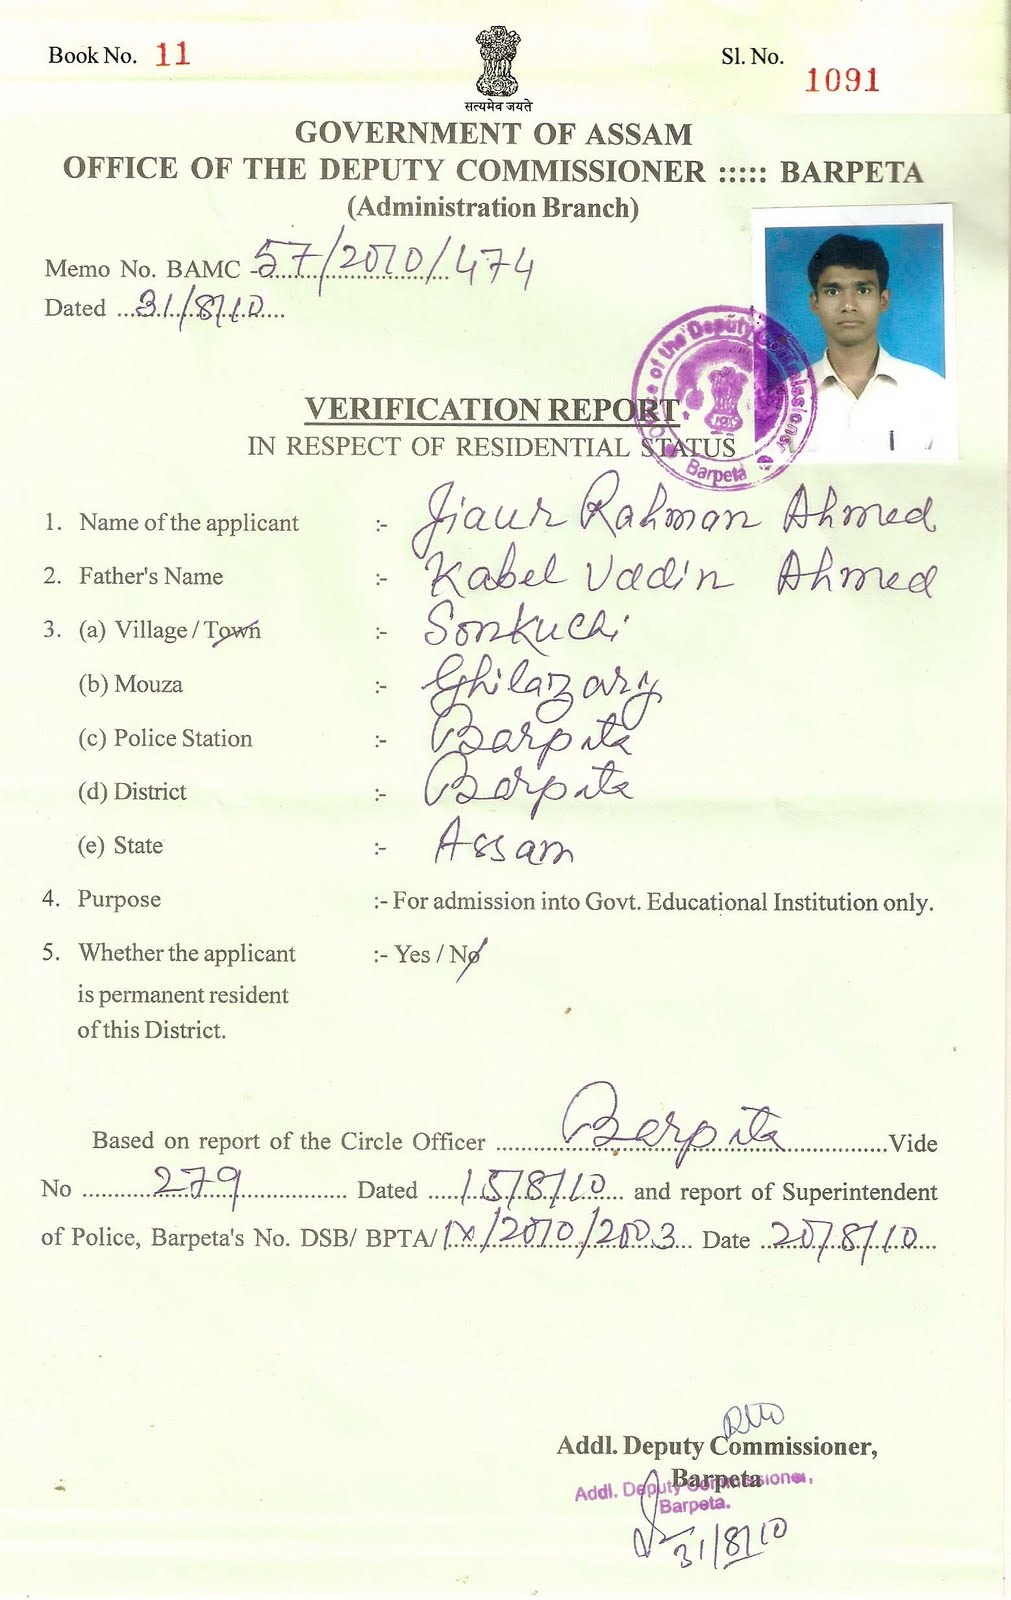 Book No. 11
Sl. No. 1091
सत्यमेव जयते
GOVERNMENT OF ASSAM
OFFICE OF THE DEPUTY COMMISSIONER ::::: BARPETA
(Administration Branch)
Memo No. BAMC - 57/2010/474
Dated ...31/8/10....
Office of the Deputy Commissioner
Barpeta
VERIFICATION REPORT
IN RESPECT OF RESIDENTIAL STATUS
1. Name of the applicant :- Jiaur Rahman Ahmed
2. Father's Name :- Kabel Uddin Ahmed
3. (a) Village / Town :- Sonkuchi
(b) Mouza :- Ghilazary
(c) Police Station :- Barpita
(d) District :- Barpita
(e) State :- Assam
4. Purpose :- For admission into Govt. Educational Institution only.
5. Whether the applicant :- Yes / No
is permanent resident
of this District.
Based on report of the Circle Officer ........Barpita........Vide
No ........279........ Dated ....15/8/10... and report of Superintendent
of Police, Barpeta's No. DSB/ BPTA/ IX/2010/2003... Date ..20/8/10...
Addl. Deputy Commissioner,
Barpeta
Addl. Deputy Commissioner,
Barpeta.
31/8/10